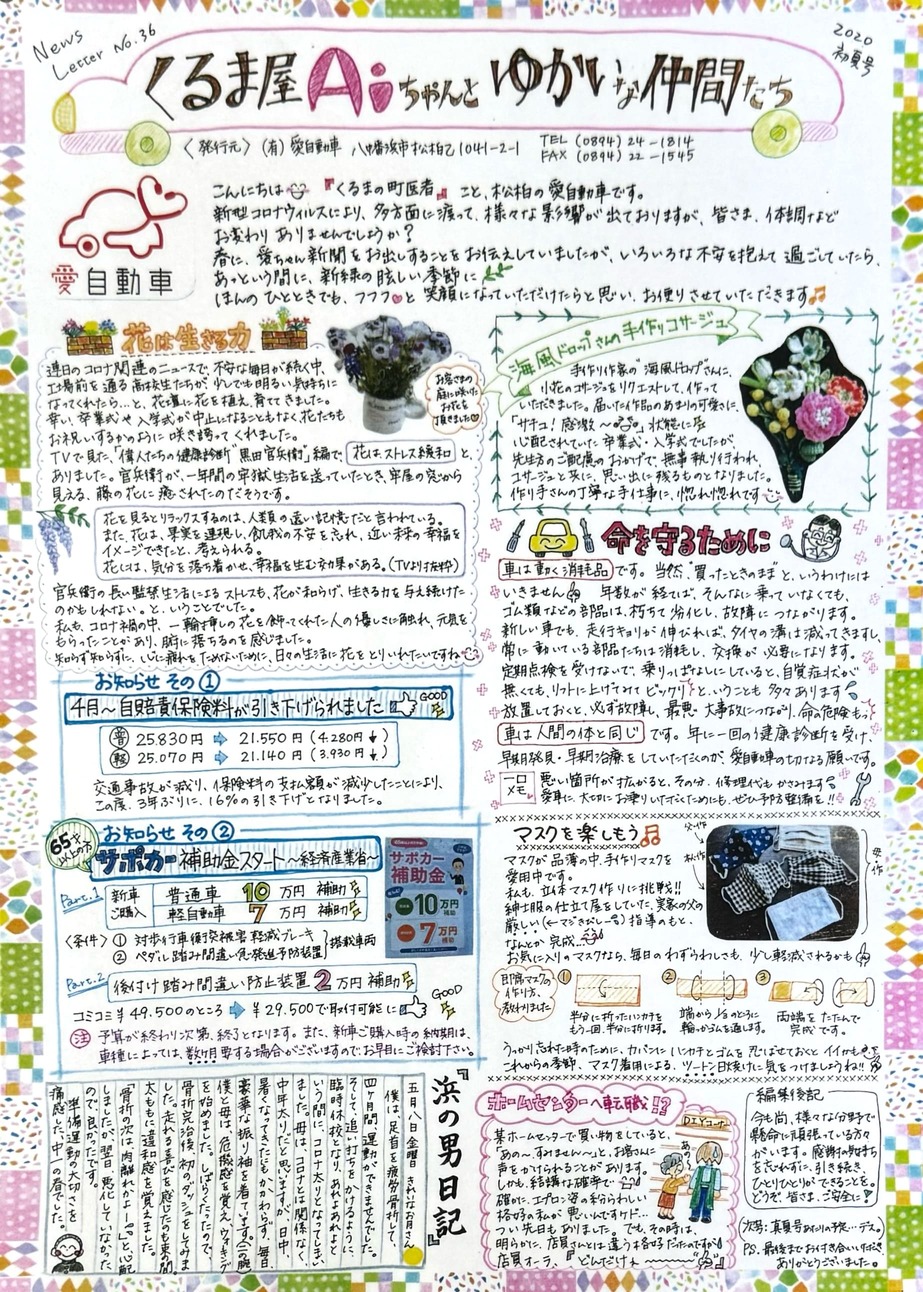 News Letter No.36
2020 初夏号
くるま屋Aiちゃんとゆかいな仲間たち
〈発行元〉(有)愛自動車 八幡浜市松柏乙1041-2-1
TEL (0894) 24-1814
FAX (0894) 22-1545
愛自動車
こんにちは 『くるまの町医者』こと、松柏の愛自動車です。
新型コロナウィルスにより、多方面に渡って、様々な影響が出ておりますが、皆さま、体調など
お変わりありませんでしょうか?
春に、愛ちゃん新聞をお出しすることをお伝えしていましたが、いろいろな不安を抱えて過ごしていたら、
あっという間に、新緑の眩しい季節に
ほんのひとときでも、フフフ♥と笑顔になっていただけたらと思い、お便りさせていただきます♫
花は生きる力
連日のコロナ関連のニュースで、不安な毎日が続く中、
工場前を通る高校生たちが、少しでも明るい気持ちに
なってくれたら…と、花壇に花を植え、育ててきました。
幸い、卒業式や入学式が中止になることもなく、花たちも
お祝いするかのように咲き誇ってくれました。
TVで見た、"偉人たちの健康診断"黒田官兵衛"編で、花はストレス緩和と、
ありました。官兵衛が、一年間の牢獄生活を送っていたとき、牢屋の窓から
見える、藤の花に癒されたのだそうです。
お客さまの
庭に咲いた
お花を
頂きました♡
花を見るとリラックスするのは、人類の遠い記憶だと言われている。
また、花は、果実を連想し、飢餓の不安を忘れ、近い未来の幸福を
イメージできたと、考えられる。
花には、気分を落ち着かせ、幸福を生む効果がある。(TVより抜粋)
官兵衛の長い監禁生活によるストレスも、花が和らげ、生きる力を与え続けた
のかもしれない。と、いうことでした。
私も、コロナ禍の中、一輪挿しの花を飾ってくれた人の優しさに触れ、元気を
もらったことがあり、腑に落ちるのを感じました。
知らず知らずに、心に疲れをためないために、日々の生活に花をとりいれたいですね
海風ドロップさんの手作りコサージュ
手作り作家の"海風ドロップ"さんに、
小花のコサージュをリクエストして、作って
いただきました。届いた作品のあまりの可愛さに、
心配されていた卒業式・入学式でしたが、
先生方のご配慮のおかげで、無事執り行われ、
コサージュと共に、思い出に残るものとなりました。
作り手さんの丁寧な手仕事に、惚れ惚れです
命を守るために
車は動く消耗品です。当然"買ったときのまま"と、いうわけには
いきません 年数が経てば、そんなに乗っていなくても、
ゴム類などの部品は、朽ちて劣化し、故障につながります。
新しい車でも、走行キョリが伸びれば、タイヤの溝は減ってきますし、
常に動いている部品たちは消耗し、交換が必要になります。
定期点検を受けないで、乗りっぱなしにしていると、自覚症状が
無くても、リフトに上げてみてビックリ と、いうことも多々あります
放置しておくと、必ず故障し、最悪大事故につながり、命の危険も…
車は人間の体と同じです。年に一回の健康診断を受け、
早期発見・早期治療をしていただくのが、愛自動車の切なる願いです。
一口メモ
悪い箇所が拡がると、その分、修理代もかさみます
愛車に大切にお乗りいただくためにも、ぜひ予防整備を!!
お知らせ その①
4月〜自賠責保険料が引き下げられました GOOD
普 25.830円 ⇨ 21.550円 (4.280円↓)
軽 25.070円 ⇨ 21.140円 (3.930円↓)
交通事故が減り、保険料の支払額が減少したことにより、
この度、3年ぶりに、16%の引き下げとなりました。
お知らせ その②
65才以上の方
サポカー補助金スタート〜経済産業省〜
Part.1
新車ご購入
普通車 10万円 補助
軽自動車 7万円 補助
〈条件〉① 対歩行車衝突被害軽減ブレーキ
② ペダル踏み間違い急発進予防装置
搭載車両
サポカー
補助金
10万円
7万円
Part.2
後付け踏み間違い防止装置 2万円補助
コミコミ¥49.500のところ ⇨ ¥29.500で取付可能に GOOD
注 予算が終わり次第、終了となります。また、新車ご購入時の納期は、
車種によっては、数ヶ月要する場合がございますのでお早目にご検討下さい。
マスクを楽しもう♫
マスクが品薄の中、手作りマスクを
愛用中です。
私も、立体マスク作りに挑戦!!
紳士服の仕立て屋をしていた、実家の父の
なんとか完成
お気に入りのマスクなら、毎日のわずらわしさも、少し軽減されるかも
父・作
私・作
母・作
即席マスクの
作り方、
教わりました
① 半分に折ったハンカチを
もう一回、半分に折ります。
② 端から1/3のところに
輪っかゴムを通します。
③ 両端をたたんで
完成です。
うっかり忘れた時のために、カバンにハンカチとゴムを忍ばせておくとイイかも
これからの季節、マスク着用による、ツートン日焼けに気をつけましょうね!!
『浜の男日記』
五月八日金曜日 きれいなお月さん
僕は、足首を疲労骨折して、
四ヶ月間、運動ができませんでした。
そして、追い打ちをかけるように、
臨時休校となり、あれよあれよと
いう間に、コロナ太りとなってしまい
ました。母は、コロナとは関係なく、
中年太りだと思いますが、日中、
暑くなってきたにもかかわらず、毎日、
豪華な振り袖を着ています(二の腕)
僕と母は、危機感を覚え、ウォーキング
を始めました。しばらくたったので、
骨折完治後、初のダッシュをしてみま
した。走れる喜びを感じたのも束の間、
太ももに違和感を覚えました。
骨折の次は、肉離れかよ…と、心配
しましたが、翌日、悪化していなかった
ので、良かったです。
準備運動の大切さを
痛感した、中一の春でした。
ホームセンターへ転職!?
某ホームセンターで買い物をしていると、
「あの〜、すみませ〜ん」と、お客さんに
声をかけられることがあります。
しかも、結構な確率で
確かに、エプロン姿の私らしい
格好の私が悪いんですケド…
つい先日もありました。でも、その時は、
明らかに、店員さんとは違う格好だったのですが
店員オーラ、『どんだけぇ〜
DIYコーナー
編集後記
今も尚、様々な分野で
懸命に頑張っている方々
がいます。感謝の気持ち
を忘れずに、引き続き、
ひとりひとりができることを。
どうぞ、皆さま、ご安全に!
(次号:真夏号あたりの予定…デス。)
PS.最後までお付き合いいただき
ありがとうございました。